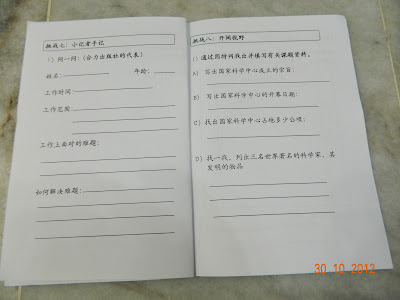 挑战七：小记者手记
1）问一问：（合力出版社的代表）
姓名： 年龄：
工作时间：
工作范围：
工作上面对的难题：
如何解决难题：
挑战八：开阔视野
1）通过因特网找出并填写有关课题资料。
A） 写出国家科学中心成立的宗旨：
B） 写出国家科学中心的开幕日期：
C） 找出国家科学中心占地多少公顷：
D） 找一找，列出三名世界著名的科学家，其
发明的物品
30 10 2012